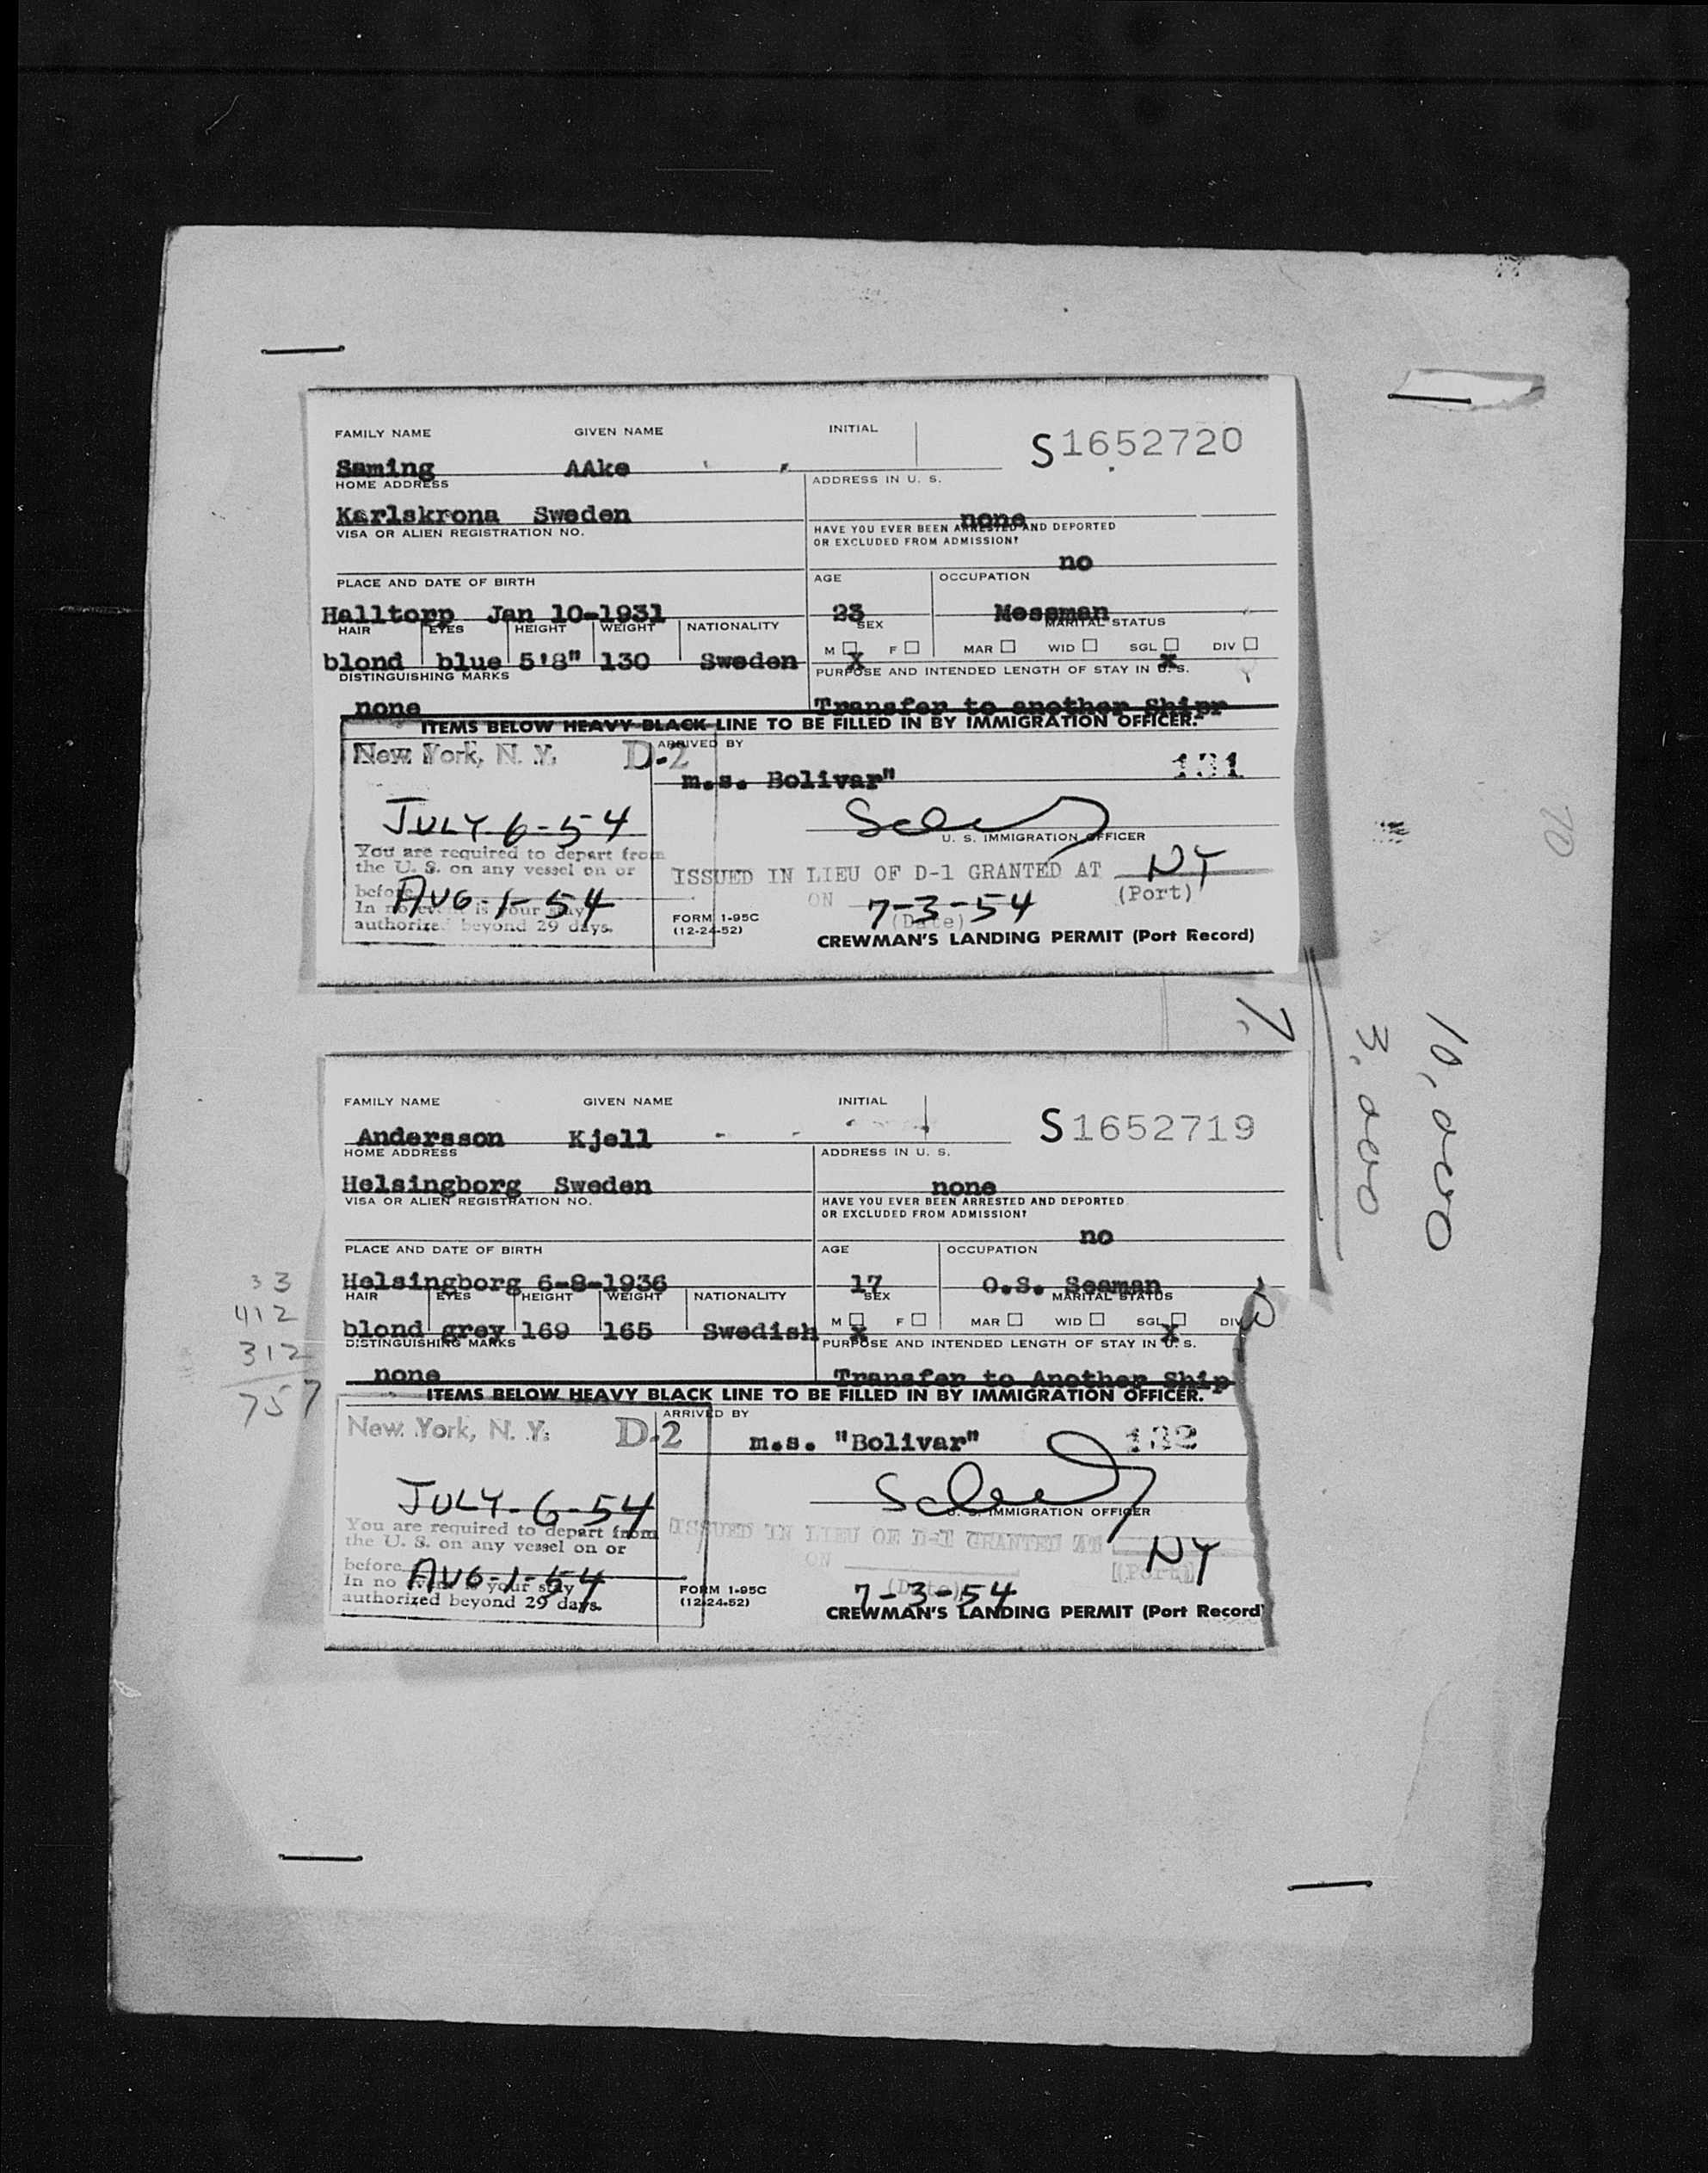 FAMILY NAME GIVEN NAME INITIAL
S1652720
Saming AAke
HOME ADDRESS ADDRESS IN U. S.
Karlskrona Sweden none
VISA OR ALIEN REGISTRATION NO. HAVE YOU EVER BEEN ARRESTED AND DEPORTED
OR EXCLUDED FROM ADMISSION?
no
PLACE AND DATE OF BIRTH AGE OCCUPATION
Halltorp Jan 10-1931 23 Messman
HAIR EYES HEIGHT WEIGHT NATIONALITY SEX MARITAL STATUS
M F MAR WID SGL DIV
blond blue 5'8" 130 Sweden X X
DISTINGUISHING MARKS PURPOSE AND INTENDED LENGTH OF STAY IN U. S.
none Transfer to another Shipr
ITEMS BELOW HEAVY BLACK LINE TO BE FILLED IN BY IMMIGRATION OFFICER.
New York, N. Y. D-2 ARRIVED BY
m.s. Bolivar" 131
JULY-6-54
U. S. IMMIGRATION OFFICER
You are required to depart from
the U. S. on any vessel on or
before AUG-1-54
In no event is your stay
authorized beyond 29 days.
ISSUED IN LIEU OF D-1 GRANTED AT NY
ON 7-3-54 (Port)
(Date)
FORM I-95C
(12-24-52)
CREWMAN'S LANDING PERMIT (Port Record)
70
10,000
3,000
7,
FAMILY NAME GIVEN NAME INITIAL
S1652719
Andersson Kjell
HOME ADDRESS ADDRESS IN U. S.
Helsingborg Sweden none
VISA OR ALIEN REGISTRATION NO. HAVE YOU EVER BEEN ARRESTED AND DEPORTED
OR EXCLUDED FROM ADMISSION?
no
PLACE AND DATE OF BIRTH AGE OCCUPATION
Helsingborg 6-8-1936 17 O.S. Seaman
HAIR EYES HEIGHT WEIGHT NATIONALITY SEX MARITAL STATUS
M F MAR WID SGL DIV
blond grey 169 165 Swedish X X
DISTINGUISHING MARKS PURPOSE AND INTENDED LENGTH OF STAY IN U. S.
none Transfer to Another Ship
ITEMS BELOW HEAVY BLACK LINE TO BE FILLED IN BY IMMIGRATION OFFICER.
New York, N. Y. D-2 ARRIVED BY
m.s. "Bolivar" 132
JULY-6-54
U. S. IMMIGRATION OFFICER
You are required to depart from
the U. S. on any vessel on or
before AUG-1-54
In no event is your stay
authorized beyond 29 days.
ISSUED IN LIEU OF D-1 GRANTED AT NY
ON 7-3-54 (Port)
(Date)
FORM I-95C
(12-24-52)
CREWMAN'S LANDING PERMIT (Port Record)
33
412
312
757